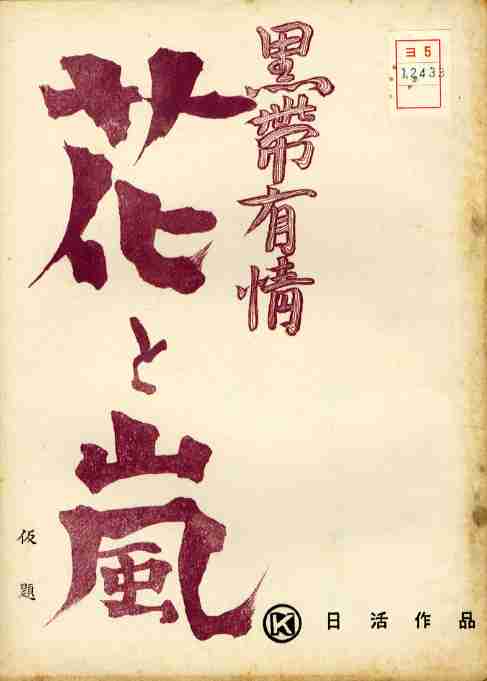 ヨ5
1,2433
黒帯有情
花と嵐
仮題
K 日活作品